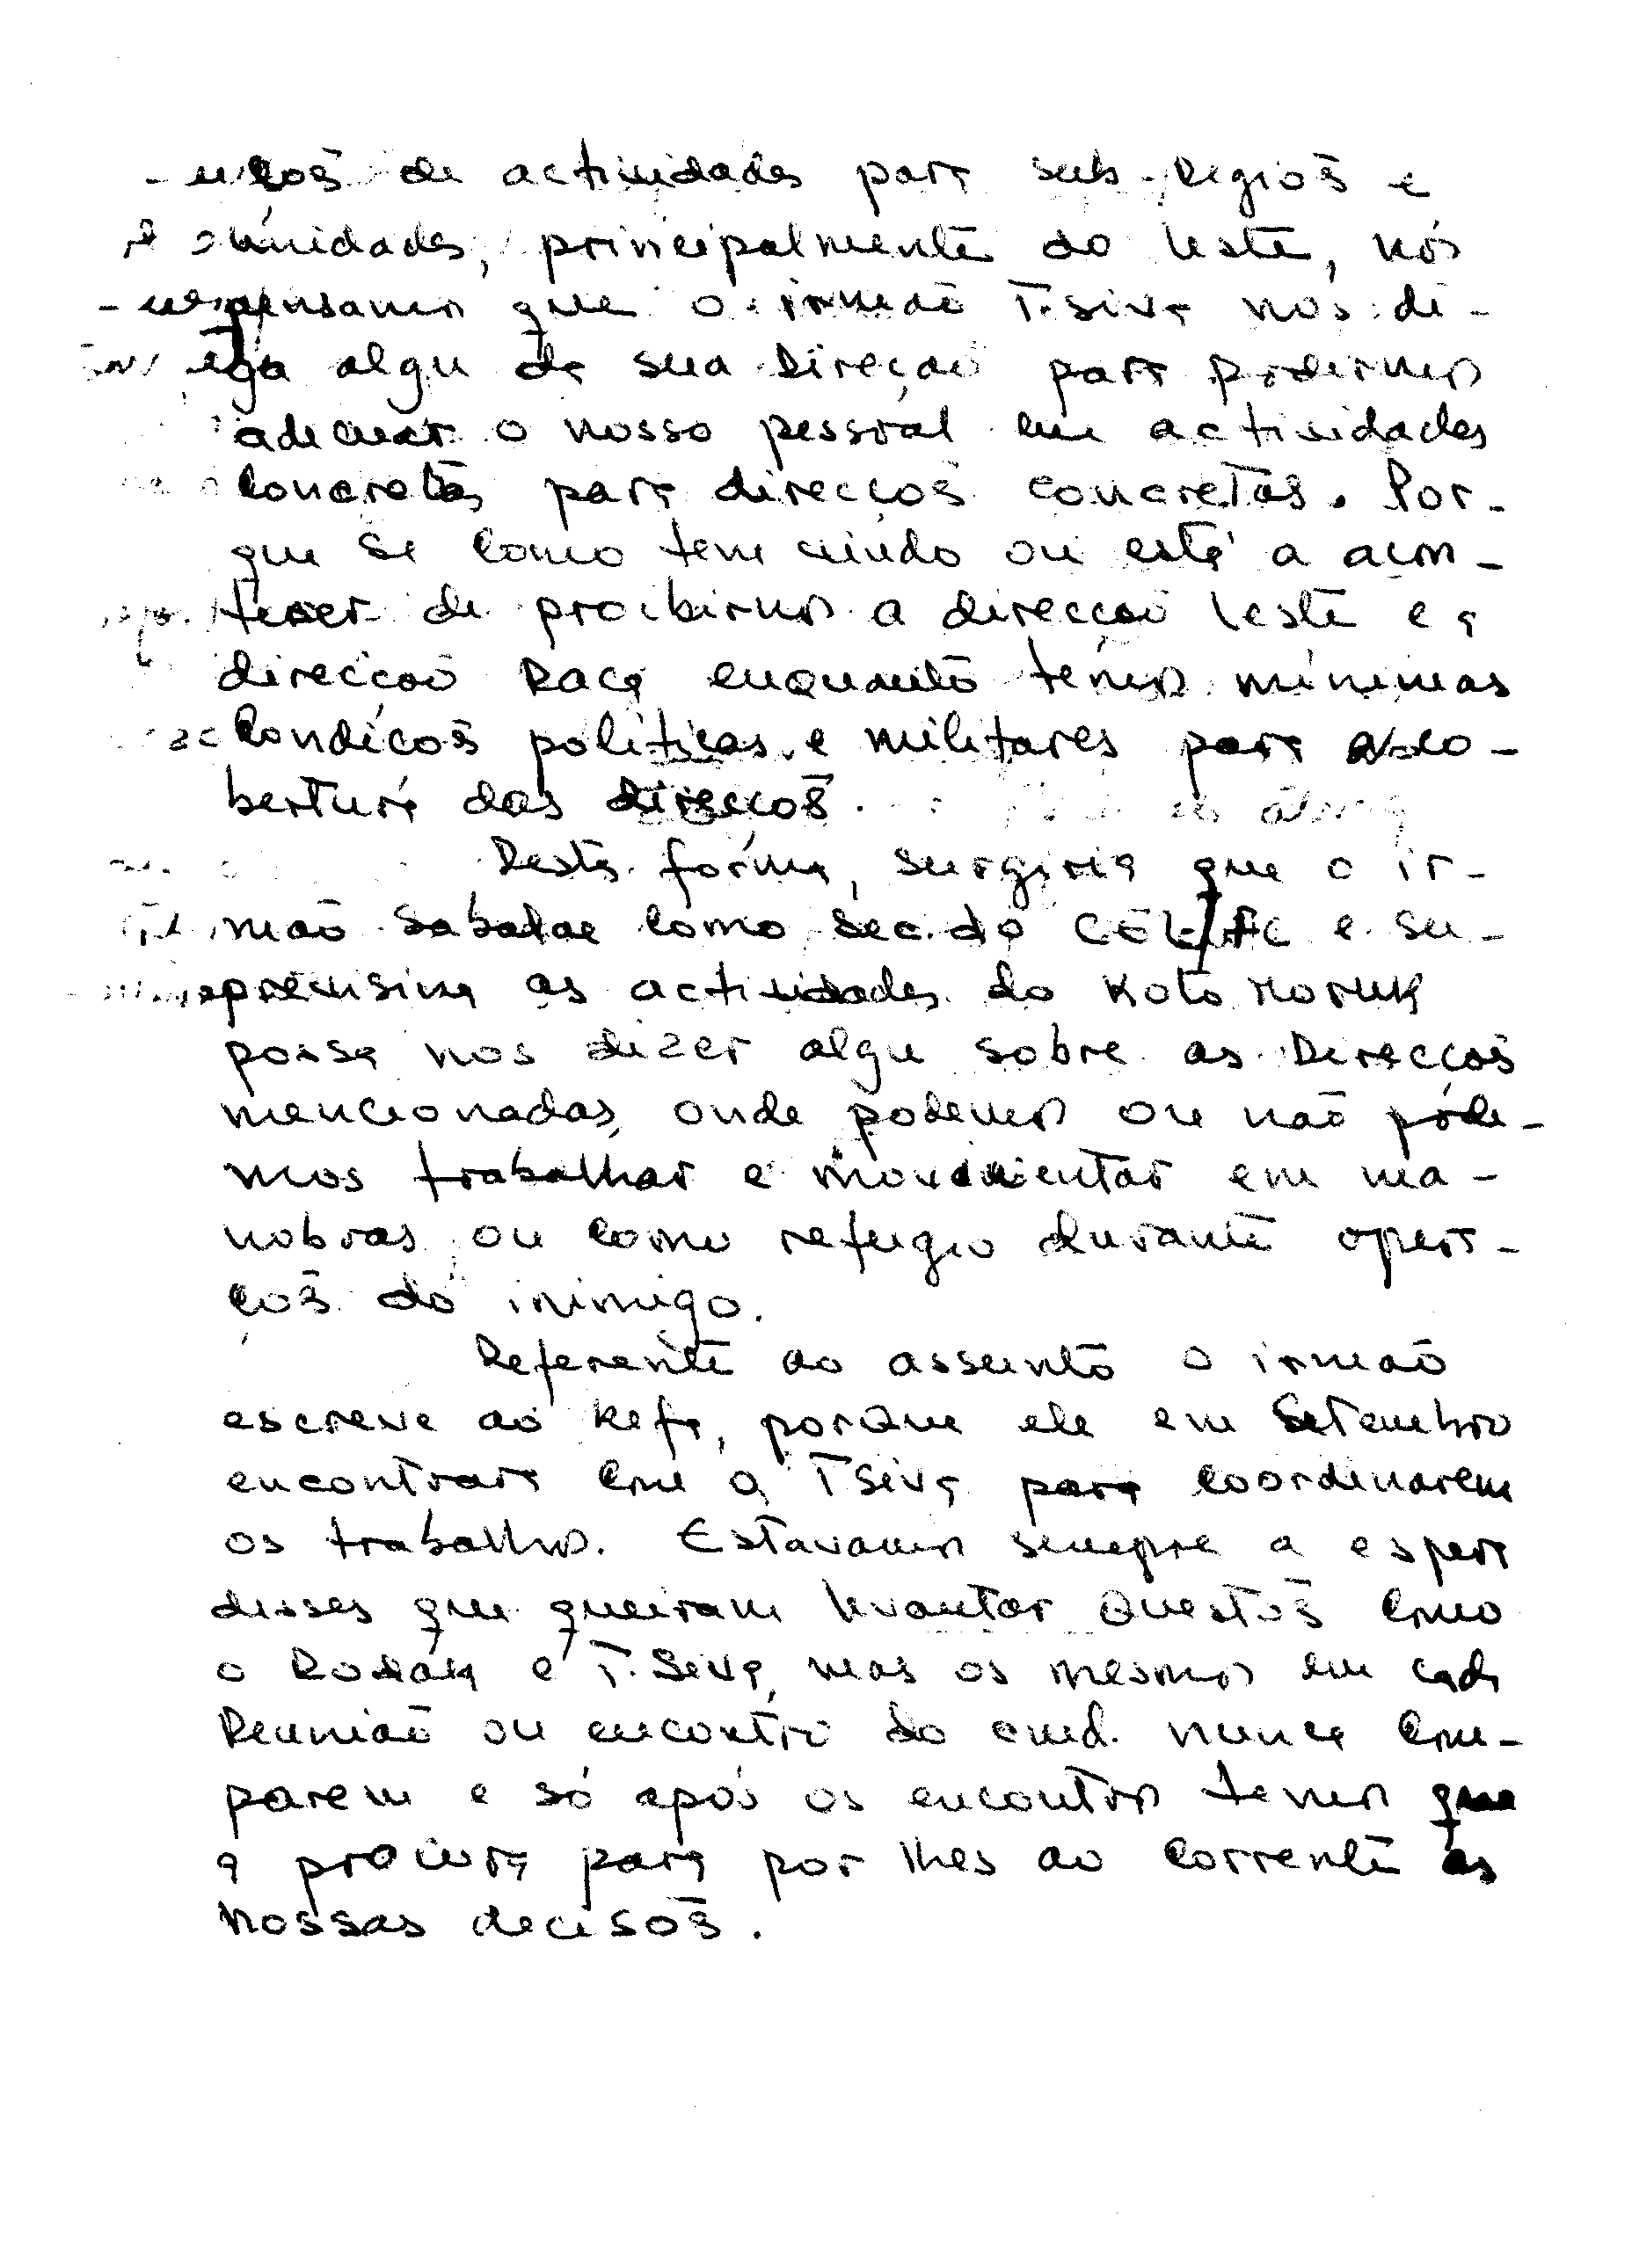 ções de actividades para sub-Regiões e
unidades, principalmente do leste, nós
pensamos que o irmão T.Siva nos di-
ga algu da sua Direção para podermos
adecuar o nosso pessoal em actividades
Concretas para direcções concretas. Por-
que se como tem vindo ou está a acon-
tecer de proibirnos a direcção leste e a
direcção Raça enquanto temos mínimas
Condições políticas e militares para a co-
bertura das direcções.
Desta forma, surgiria que o ir-
mão Sabalae como Sec. do e su-
as actividades do Koto Moruk
possa nos dizer algu sobre as Direcções
mencionadas, onde podemos ou não póde-
mos trabalhar e movimentar em ma-
nobras ou como refugio durante opera-
ções do inimigo.
Referente ao assunto o irmão
escreve ao Refa, porque ele em Setembro
encontrara com o T Siva para coordinarem
os trabalhos. Estavamos sempre a espera
disses que queiram levantar Questões como
o Rodák e T. Siva, mas os mesmos em cada
Reunião ou encontro do cmd. nunca com-
parem e só após os encontros temos que
a procura para por lhes ao corrente as
nossas decisões.